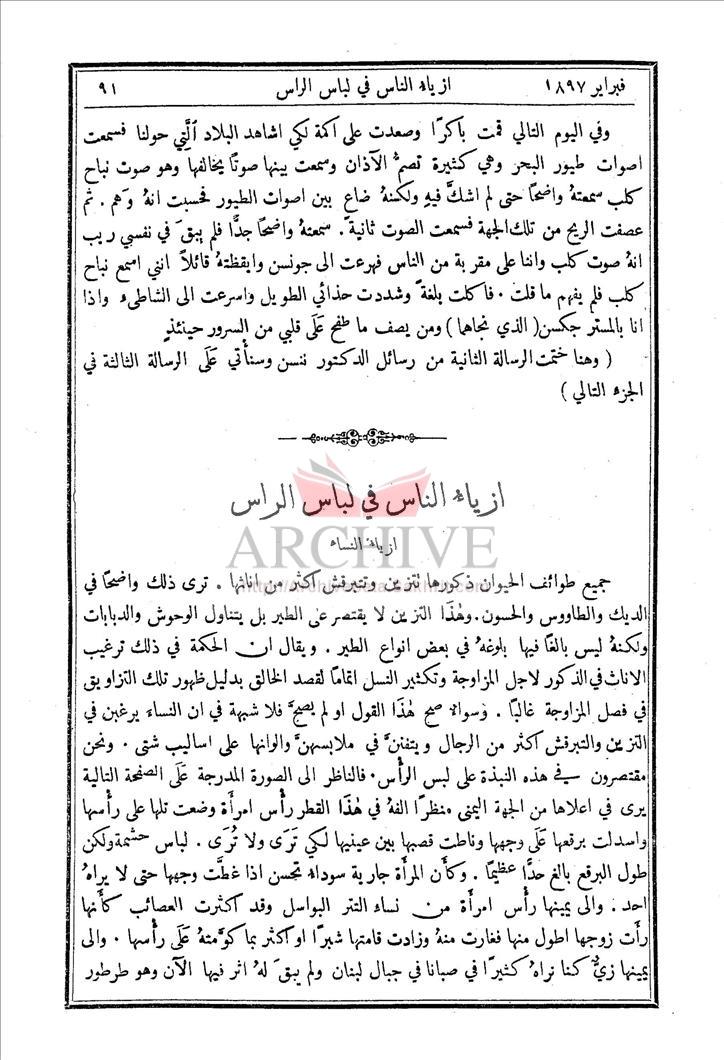 فبراير ١٨٩٧ ازياء الناس في لباس الراس ٩١
وفي اليوم التالي قمت باكرًا وصعدت على اكمة لكي اشاهد البلاد الَّتي حولنا فسمعت
اصوات طيور البحر وهي كثيرة تصمُّ الآذان وسمعت بينها صوتًا يخالفها وهو صوت نباح
كلب سمعتهُ واضحًا حتى لم اشكَّ فيهِ ولكنهُ ضاع بين اصوات الطيور فحسبت انهُ وَهم . ثم
عصفت الريح من تلك الجهة فسمعت الصوت ثانيةً . سمعتهُ واضحًا جدًّا فلم يبقَ في نفسي ريب
انهُ صوت كلب واننا على مقربة من الناس فهرعت الى جونسن وايقظتهُ قائلاً انني اسمع نباح
كلب فلم يفهم ما قلت . فاكلت بلغةً وشددت حذائي الطويل واسرعت الى الشاطىء واذا
انا بالمستر جكسن ( الذي نجاهما ) ومن يصف ما طفح عَلَى قلبي من السرور حينئذٍ
( وهنا ختمت الرسالة الثانية من رسائل الدكتور ننسن وسنأْتي عَلَى الرسالة الثالثة في
الجزء التالي )
ازياء الناس في لباس الراس
ARCHIVE
ازياء النساء
جميع طوائف الحيوان ذكورها تتزين وتتبرقش اكثر من اناثها . ترى ذلك واضحًا في
الديك والطاووس والحسون . وهٰذَا التزين لا يقتصر على الطير بل يتناول الوحوش والدبابات
ولكنهُ ليس بالغًا فيها بلوغهُ في بعض انواع الطير . ويقال ان الحكمة في ذلك ترغيب
الاناث في الذكور لاجل المزاوجة وتكثير النسل اتمامًا لقصد الخالق بدليل ظهور تلك التزاويق
في فصل المزاوجة غالبًا . وسواء صح هٰذَا القول او لم يصحَّ فلا شبهة في ان النساء يرغبن في
التزين والتبرقش اكثر من الرجال ويتفننَّ في ملابسهنَّ والوانها على اساليب شتى . ونحن
مقتصرون في هذه النبذة على لبس الرأْس . فالناظر الى الصورة المدرجة عَلَى الصفحة التالية
يرى في اعلاها من الجهة اليمنى منظرًا الفهُ في هٰذَا القطر رأْس امرأَة وضعت تلها على رأْسها
واسدلت برقعها عَلَى وجهها وناطت قصبها بين عينيها لكي تَرَى ولا تُرَى . لباس حشمة ولكن
طول البرقع بالغ حدًّا عظيمًا . وكأَن المرأَة جارية سوداء تحسن اذا غطَّت وجهها حتى لا يراهُ
احد . والى يمينها رأْس امرأَة من نساء التتر البواسل وقد اكثرت العصائب كأَنها
رأَت زوجها اطول منها فغارت منهُ وزادت قامتها شبرًا او اكثر بما كوَّمتهُ عَلَى رأْسها . والى
يمينها زيٌّ كنا نراهُ كثيرًا في صبانا في جبال لبنان ولم يبقَ لهُ اثر فيها الآن وهو طرطور